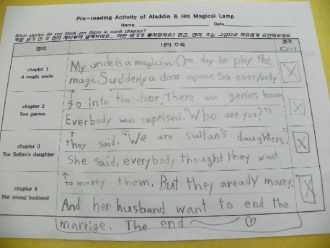 Pre-reading Activity of Aladdin & His Magical Lamp
Name
Date
What stories do you think are there in each chapter?
영역
내용 예측
chapter 1
A magic uncle
My uncle is a magician. One day to play the
magic. Suddenly a door apear. So everybody
chapter 2
Two genies
go into the door. There was genies bowing
Everbody was suprised. "Who are you?"
chapter 3
The Sultan's daughter
They said, "We are sultan's daughters."
She said, everybody thought they want
chapter 4
The wrong husband
to marry them. But they already marry.
And her husband want to end the
marrige. The end